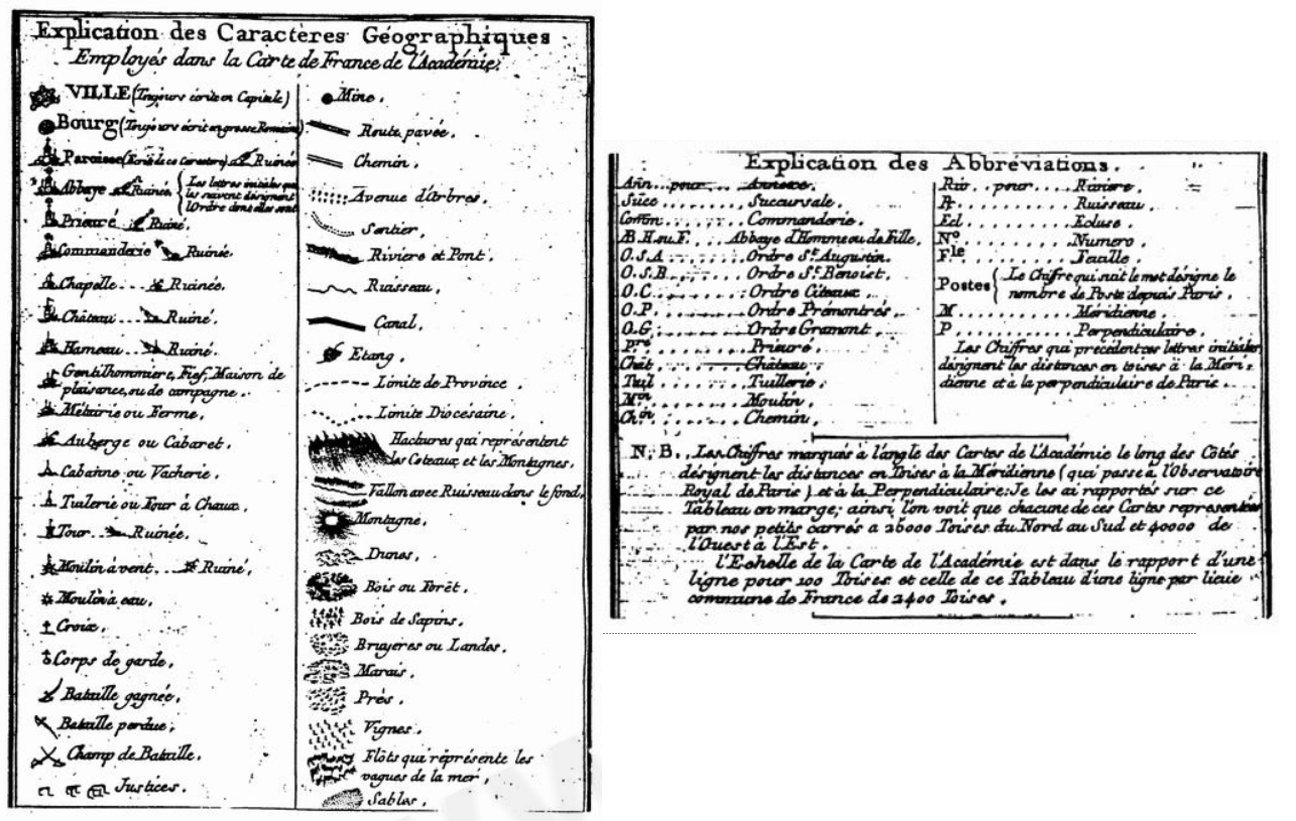 Explication des Caractères Géographiques
Employés dans la Carte de France de l'Académie.
VILLE (Toujours écrite en Capitale)
Bourg (Toujours écrit en grosse Romaine)
Paroisse (Ecrite de ce Caractere) Ruinée
Abbaye Ruinée. { Les lettres initiales qui
les suivent désignent
l'Ordre dont elles sont
Prieuré Ruiné.
Commanderie Ruinée.
Chapelle... Ruinée.
Château... Ruiné.
Hameau... Ruiné.
Gentilhommiere, Fief, Maison de
plaisance, ou de campagne.
Métairie ou Ferme,
Auberge ou Cabaret,
Cabanne ou Vacherie,
Tuilerie ou Four à Chaux,
Tour... Ruinée.
Moulin à vent... Ruiné,
Moulin à eau,
Croix,
Corps de garde,
Bataille gagnée,
Bataille perdue,
Champ de Bataille,
Justices.
Mine,
Route pavée,
Chemin,
Avenue d'Arbres,
Sentier,
Riviere et Pont,
Ruisseau,
Canal,
Etang,
Limite de Province,
Limite Diocesaine,
Hachures qui représentent
les Coteaux et les Montagnes,
Vallon avec Ruisseau dans le fond,
Montagne,
Dunes,
Bois ou Forêt,
Bois de Sapins,
Bruyeres ou Landes,
Marais,
Prés,
Vignes,
Flôts qui réprésente les
vagues de la mer,
Sables,
Explication des Abbréviations.
Ann...pour... Annexe.
Succ......... Succursale.
Comm......... Commanderie.
AB.H.ou F.... Abbaye d'Homme ou de Fille.
O.S.A........ Ordre St. Augustin.
O.S.B........ Ordre St. Benoist.
O.C.......... Ordre Citeaux.
O.P.......... Ordre Prémontrés.
O.G.......... Ordre Gramont.
Pré.......... Prieuré.
Chât......... Château.
Tuil......... Tuillerie.
Min.......... Moulin.
Chin......... Chemin.
Riv...pour... Riviere.
....... Ruisseau.
Ecl.......... Ecluse.
No........... Numero.
Fle.......... Feuille.
Postes { Le Chiffre qui suit le mot désigne le
nombre de Poste depuis Paris.
M............ Méridienne.
P............ Perpendiculaire.
Les Chiffres qui précédent ces lettres initiales
désignent les distances en toises à la Méri-
dienne et à la perpendiculaire de Paris.
N. B. Les Chiffres marqués à l'angle des Cartes de l'Académie le long des Côtés
désignent les distances en Toises à la Méridienne (qui passe à l'Observatoire
Royal de Paris) et à la Perpendiculaire: Je les ai rapportés sur ce
Tableau en marge; ainsi l'on voit que chacune de ces Cartes representées
par nos petits carrés a 25000 Toises du Nord au Sud et 40000 de
l'Ouest à l'Est.
l'Echelle de la Carte de l'Académie est dans le rapport d'une
ligne pour 100 Toises et celle de ce Tableau d'une ligne par lieue
commune de France de 2400 Toises.